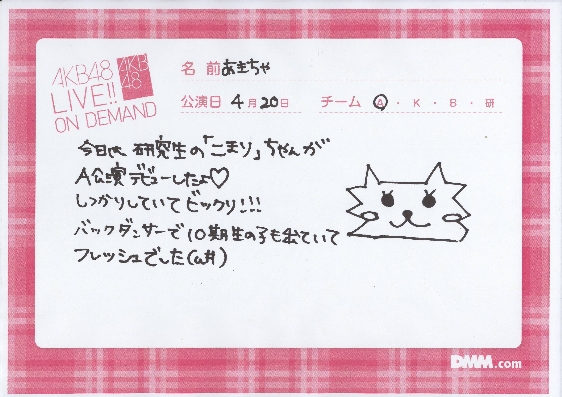 AKB48
LIVE!!
ON DEMAND
AKB
48
名前 あきちゃ
公演日 4月20日
チーム A・K・B・研
今日は、研究生の「こまり」ちゃんが
A公演デビューしたよ♡
しっかりしていてビックリ!!!
バックダンサーで10期生の子も出ていて
フレッシュでした(ω#)
DMM.com